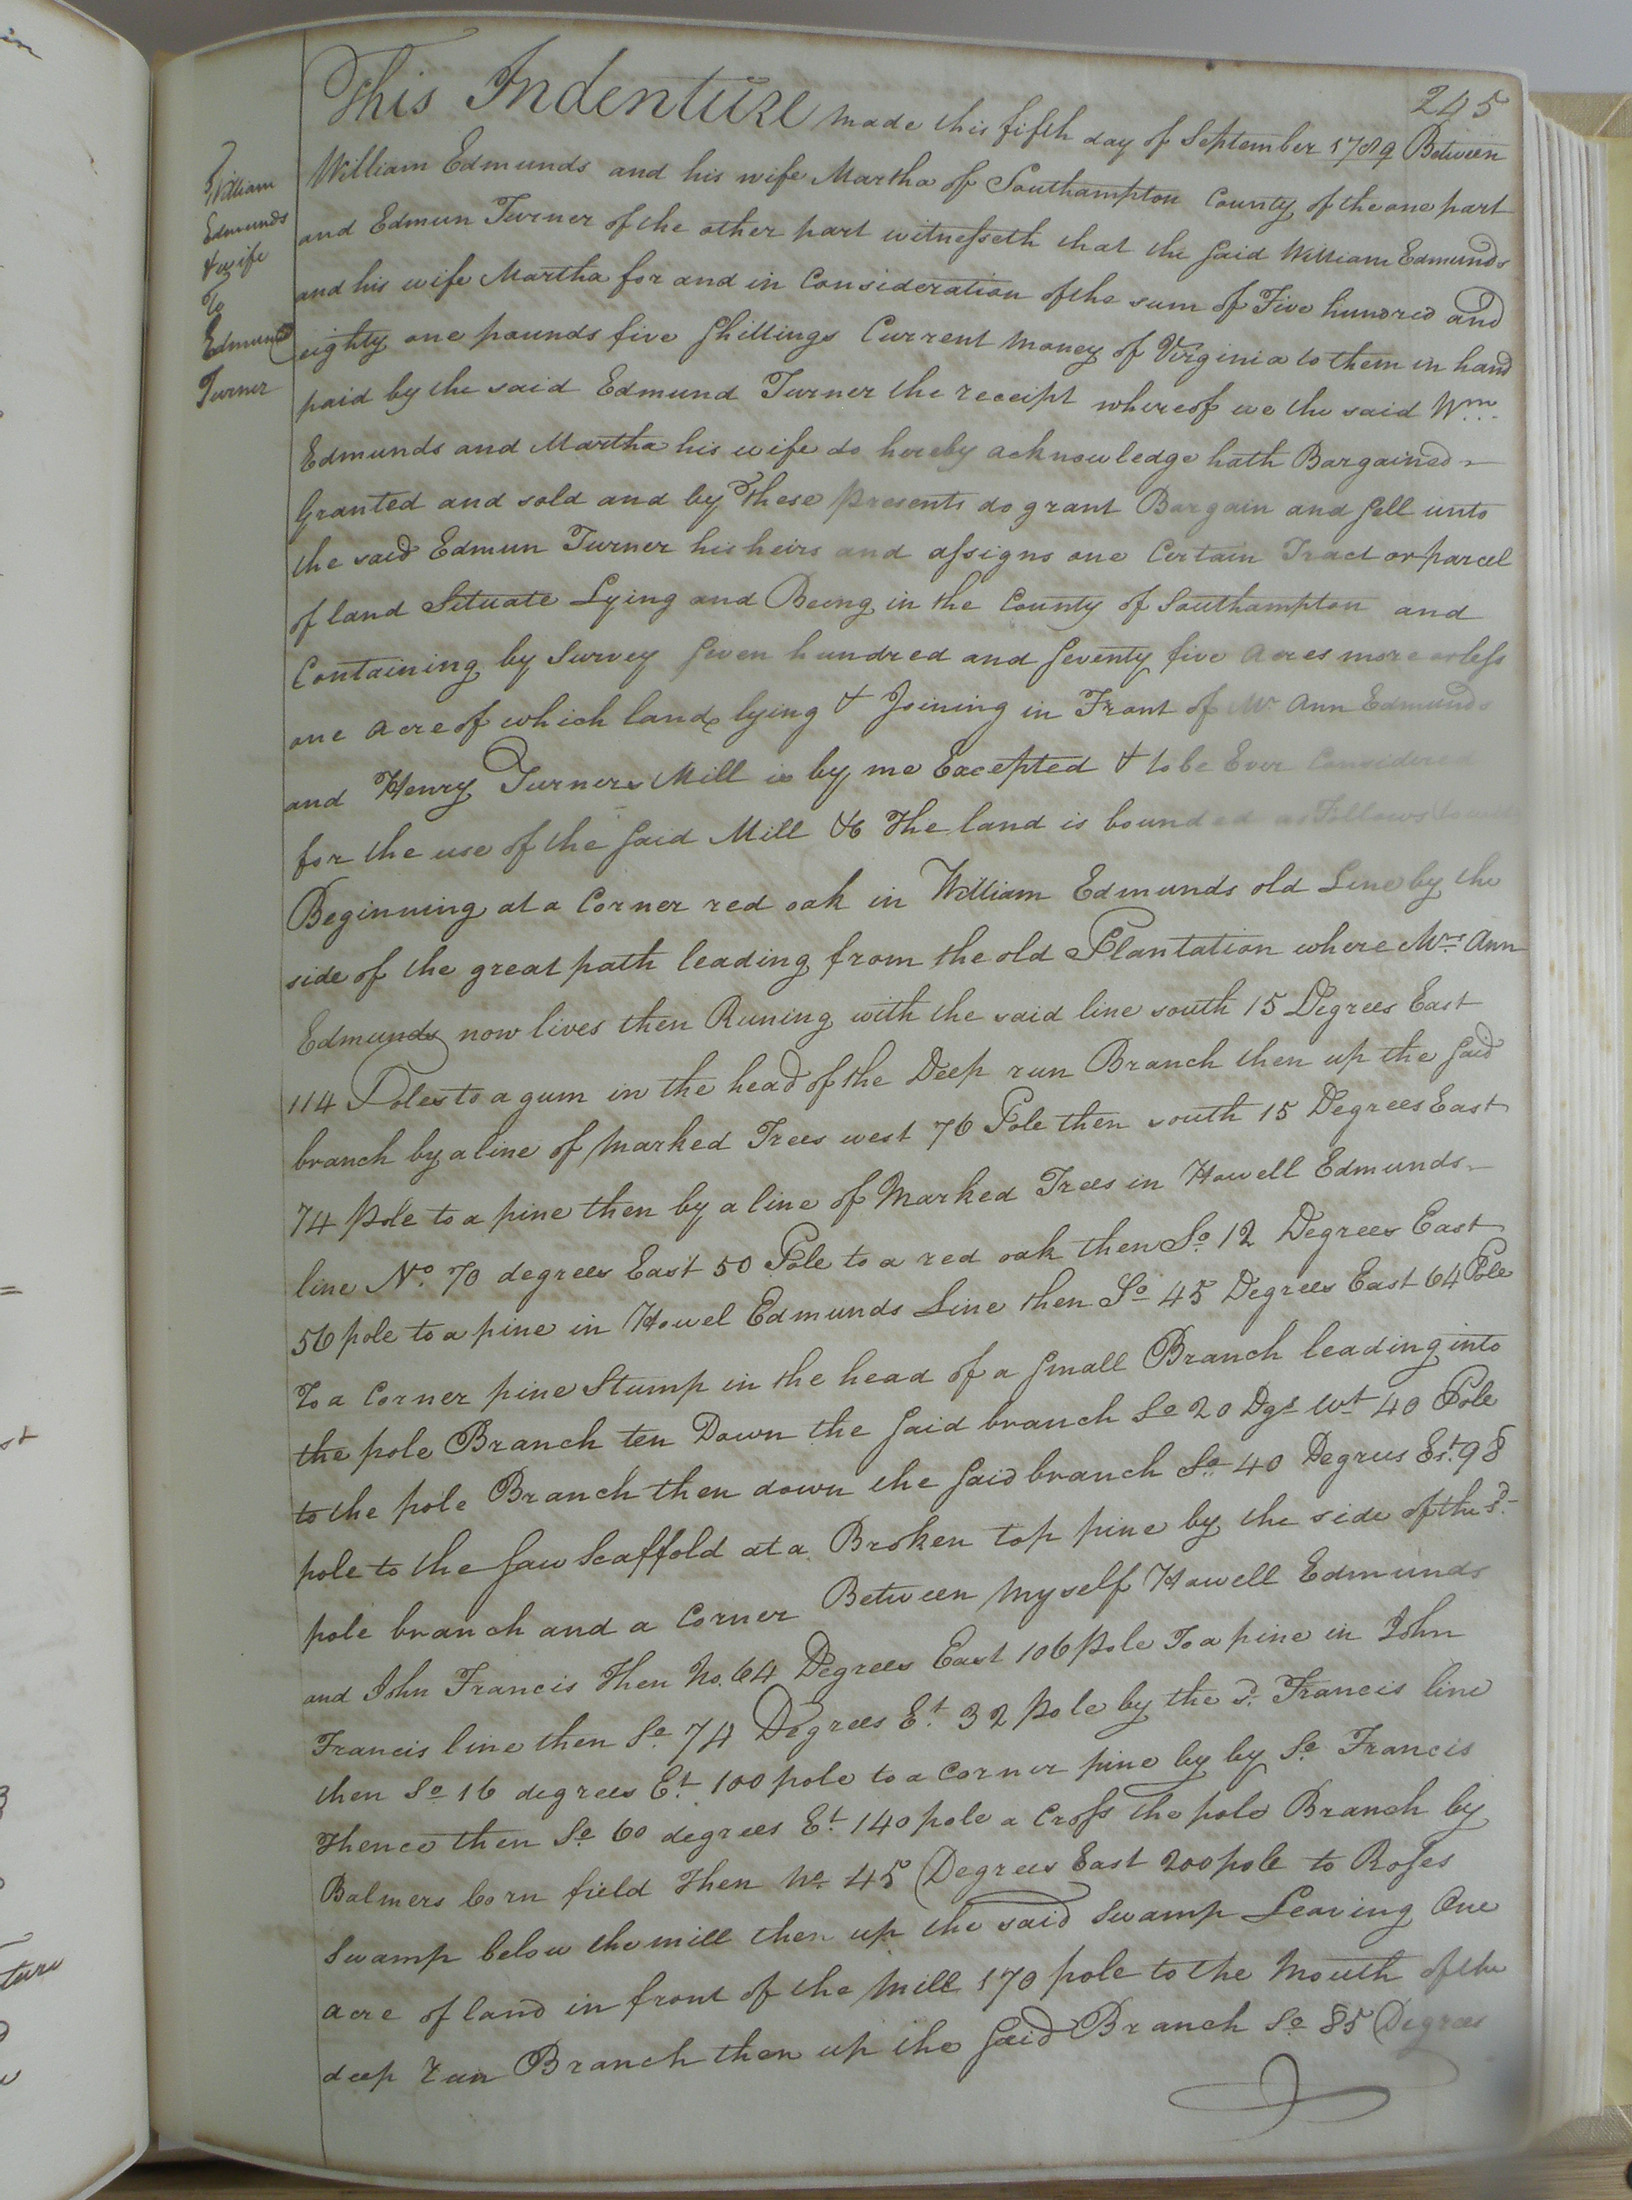 245
This Indenture made this fifth day of September 1789 Between
William Edmunds and his wife Martha of Southampton County of the one part
and Edmun Turner of the other part witnesseth that the said William Edmunds
and his wife Martha for and in Consideration of the sum of Five hundred and
eighty one pounds five shillings Current money of Virginia to them in hand
paid by the said Edmund Turner the receipt whereof we the said Wm
Edmunds and Martha his wife do hereby acknowledge hath Bargained
Granted and sold and by these presents do grant Bargain and sell unto
the said Edmun Turner his heirs and assigns one Certain Tract or parcel
of land Situate Lying and Being in the County of Southampton and
Containing by Survey seven hundred and seventy five acres more or less
one acre of which land lying & Joining in Front of Mrs Ann Edmunds
and Henry Turners Mill is by me Excepted & to be Ever Considered
for the use of the said Mill &c The land is bounded as Follows to wit
Beginning at a Corner red oak in William Edmunds old Line by the
side of the great path leading from the old Plantation where Mrs Ann
Edmunds now lives then Runing with the said line south 15 Degrees East
114 Poles to a gum in the head of the Deep run Branch then up the said
branch by a line of marked Trees west 76 Pole then south 15 Degrees East
74 pole to a pine then by a line of Marked Trees in Howell Edmunds
line No. 70 degrees East 50 Pole to a red oak then So. 12 Degrees East
56 pole to a pine in Howel Edmunds Line then So 45 Degrees East 64 Pole
To a Corner pine Stump in the head of a small Branch leading into
the pole Branch ten Down the said branch So 20 Dgs Wt 40 Pole
to the pole Branch then down the said branch So 40 Degrees Est. 98
pole to the saw Scaffold at a Broken top pine by the side of the sd.
pole branch and a Corner Between myself Howell Edmunds
and John Francis Then No. 64 Degrees East 106 pole To a pine in John
Francis line then So. 74 Degrees Et. 32 pole by the sd. Francis line
then So 16 degrees Et. 100 pole to a Corner pine by by Sd. Francis
Thence then So 60 degrees Et. 140 pole a Cross the pole Branch by
Balmers Corn field Then No. 45 Degrees East 200 pole to Roses
Swamp below the mill then up the said Swamp Leaving One
acre of land in front of the Mill 170 pole to the Mouth of the
deep run Branch then up the said Branch So 85 Degrees
William
Edmunds
& wife
To
Edmund
Turner